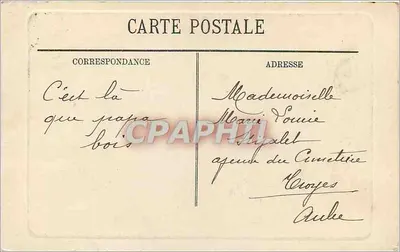 CARTE POSTALE
CORRESPONDANCE
ADRESSE
C'est là
que papa
bois
Mademoiselle
Marie Louise
CPAPHIL
du Cimetière
Troyes
Aube